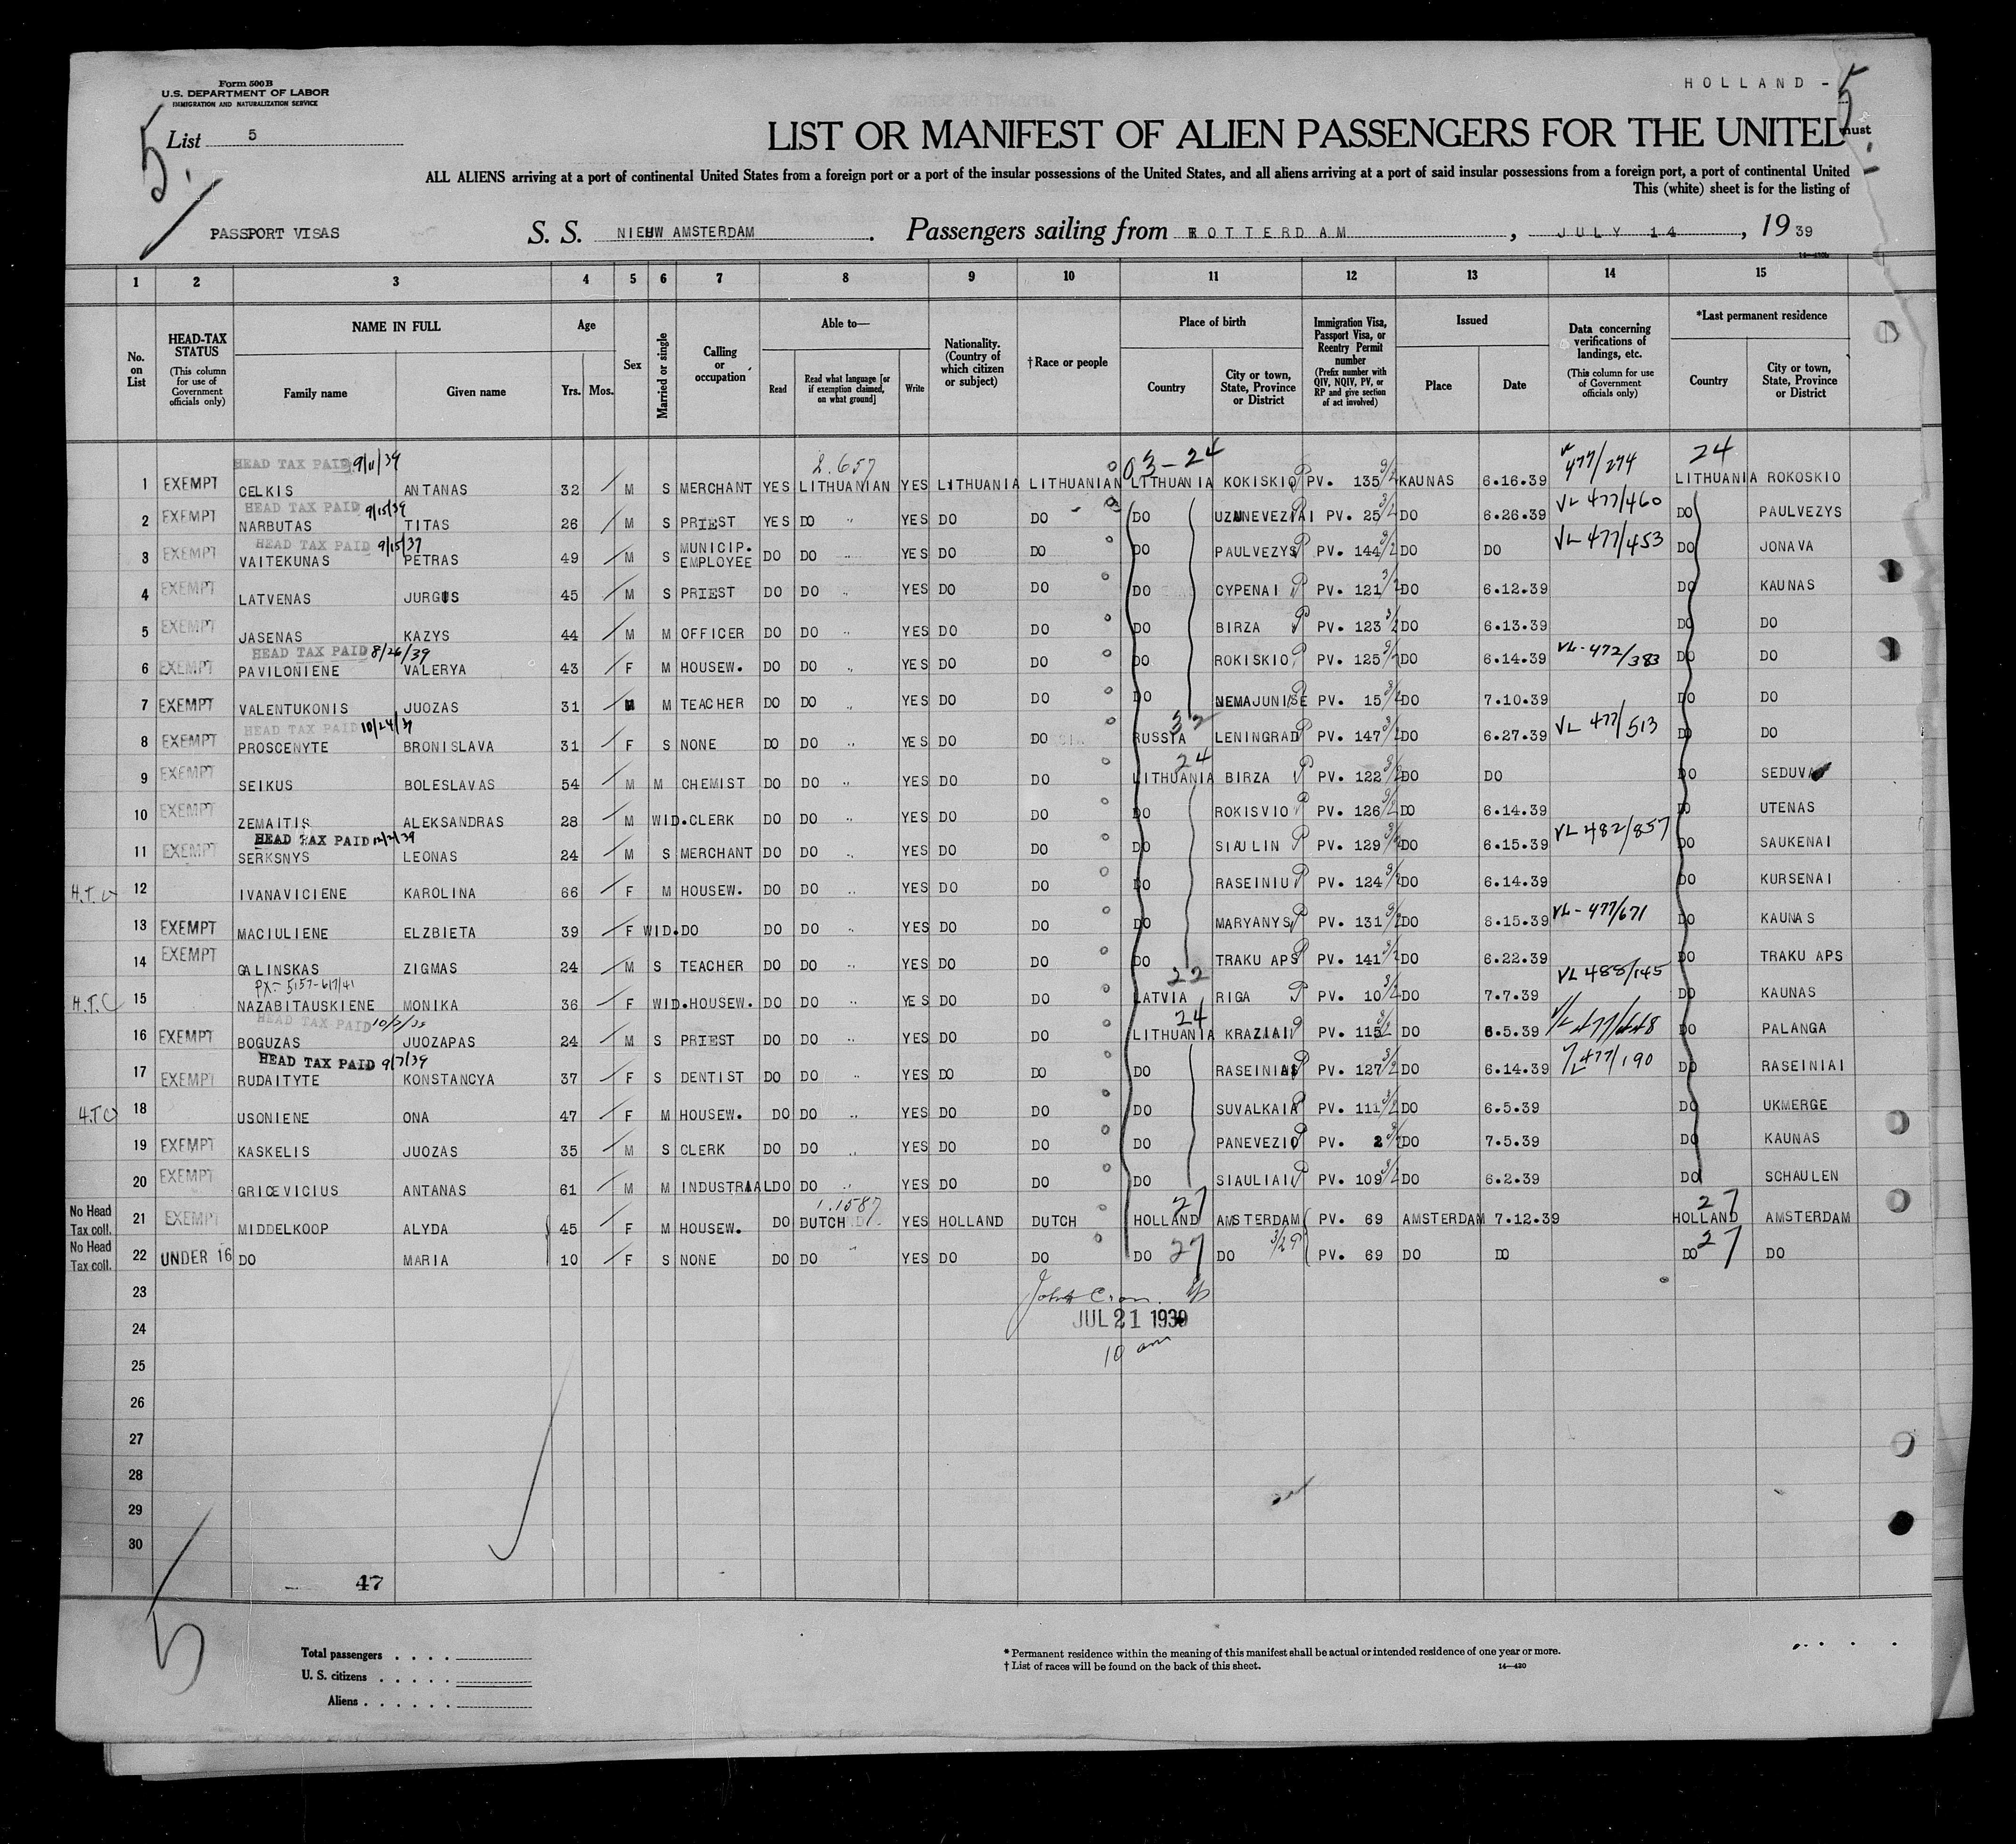 Form 500 B
U.S. DEPARTMENT OF LABOR
IMMIGRATION AND NATURALIZATION SERVICE
HOLLAND - 5
List 5
5
LIST OR MANIFEST OF ALIEN PASSENGERS FOR THE UNITED
must
ALL ALIENS arriving at a port of continental United States from a foreign port or a port of the insular possessions of the United States, and all aliens arriving at a port of said insular possessions from a foreign port, a port of continental United
This (white) sheet is for the listing of
PASSPORT VISAS S. S. NIEUW AMSTERDAM. Passengers sailing from ROTTERDAM, JULY 14, 19 39
1 2 3 4 5 6 7 8 9 10 11 12 13 14 15
No. on List
HEAD-TAX STATUS (This column for use of Government officials only)
NAME IN FULL Family name Given name
Age Yrs. Mos.
Sex
Married or single
Calling or occupation
Able to— Read Read what language [or if exemption claimed, on what ground] Write
Nationality. (Country of which citizen or subject)
†Race or people
Place of birth Country City or town, State, Province or District
Immigration Visa, Passport Visa, or Reentry Permit number (Prefix number with QIV, NQIV, PV, or RP and give section of act involved)
Issued Place Date
Data concerning verifications of landings, etc. (This column for use of Government officials only)
*Last permanent residence Country City or town, State, Province or District
HEAD TAX PAID 9/11/39 2.657 03-24 477/274 24
1 EXEMPT CELKIS ANTANAS 32 M S MERCHANT YES LITHUANIAN YES LITHUANIA LITHUANIAN LITHUANIA KOKISKIO PV. 135 3/2 KAUNAS 6.16.39 LITHUANIA ROKOSKIO
HEAD TAX PAID 9/15/39
2 EXEMPT NARBUTAS TITAS 26 M S PRIEST YES DO " YES DO DO DO UZUNEVEZIAI PV. 25 3/2 DO 6.26.39 VL 477/460 DO PAULVEZYS
HEAD TAX PAID 9/15/39
3 EXEMPT VAITEKUNAS PETRAS 49 M S MUNICIP. EMPLOYEE DO DO " YES DO DO DO PAULVEZYS PV. 144 3/2 DO DO VL 477/453 DO JONAVA
4 EXEMPT LATVENAS JURGUS 45 M S PRIEST DO DO " YES DO DO DO CYPENAI PV. 121 3/2 DO 6.12.39 DO KAUNAS
5 EXEMPT JASENAS KAZYS 44 M M OFFICER DO DO " YES DO DO DO BIRZA PV. 123 3/2 DO 6.13.39 DO DO
HEAD TAX PAID 8/26/39
6 EXEMPT PAVILONIENE VALERYA 43 F M HOUSEW. DO DO " YES DO DO DO ROKISKIO PV. 125 3/2 DO 6.14.39 VL-472/383 DO DO
7 EXEMPT VALENTUKONIS JUOZAS 31 M M TEACHER DO DO " YES DO DO DO NEMAJUNISE PV. 15 3/2 DO 7.10.39 DO DO
HEAD TAX PAID 10/24/39 32
8 EXEMPT PROSCENYTE BRONISLAVA 31 F S NONE DO DO " YES DO DO RUSSIA LENINGRAD PV. 147 3/2 DO 6.27.39 VL 477/513 DO DO
24
9 EXEMPT SEIKUS BOLESLAVAS 54 M M CHEMIST DO DO " YES DO DO LITHUANIA BIRZA PV. 122 3/2 DO DO DO SEDUVA
10 EXEMPT ZEMAITIS ALEKSANDRAS 28 M WID. CLERK DO DO " YES DO DO DO ROKISVIO PV. 126 3/2 DO 6.14.39 DO UTENAS
HEAD TAX PAID 12/2/39
11 EXEMPT SERKSNYS LEONAS 24 M S MERCHANT DO DO " YES DO DO DO SIAULIN PV. 129 3/2 DO 6.15.39 VL 482/857 DO SAUKENAI
H.T.C 12 IVANAVICIENE KAROLINA 66 F M HOUSEW. DO DO " YES DO DO DO RASEINIU PV. 124 3/2 DO 6.14.39 DO KURSENAI
13 EXEMPT MACIULIENE ELZBIETA 39 F WID. DO DO DO " YES DO DO DO MARYANYS PV. 131 3/2 DO 6.15.39 VL-477/671 DO KAUNAS
14 EXEMPT GALINSKAS ZIGMAS 24 M S TEACHER DO DO " YES DO DO DO TRAKU APS PV. 141 3/2 DO 6.22.39 DO TRAKU APS
PX-5157-617/41 22 VL 488/145
H.T.C 15 NAZABITAUSKIENE MONIKA 36 F WID. HOUSEW. DO DO " YES DO DO LATVIA RIGA PV. 10 3/2 DO 7.7.39 DO KAUNAS
HEAD TAX PAID 10/3/39 24
16 EXEMPT BOGUZAS JUOZAPAS 24 M S PRIEST DO DO " YES DO DO LITHUANIA KRAZIAI PV. 115 3/2 DO 6.5.39 VL 477/448 DO PALANGA
HEAD TAX PAID 9/7/39
17 EXEMPT RUDAITYTE KONSTANCYA 37 F S DENTIST DO DO " YES DO DO DO RASEINIAI PV. 127 3/2 DO 6.14.39 VL 477/190 DO RASEINIAI
H.T.C 18 USONIENE ONA 47 F M HOUSEW. DO DO " YES DO DO DO SUVALKAIA PV. 111 3/2 DO 6.5.39 DO UKMERGE
19 EXEMPT KASKELIS JUOZAS 35 M S CLERK DO DO " YES DO DO DO PANEVEZIO PV. 2 3/2 DO 7.5.39 DO KAUNAS
20 EXEMPT GRICEVICIUS ANTANAS 61 M M INDUSTRIAL DO DO " YES DO DO DO SIAULIAI PV. 109 3/2 DO 6.2.39 DO SCHAULEN
1.1587 27 27
No Head Tax coll. 21 EXEMPT MIDDELKOOP ALYDA 45 F M HOUSEW. DO DUTCH YES HOLLAND DUTCH HOLLAND AMSTERDAM PV. 69 AMSTERDAM 7.12.39 HOLLAND AMSTERDAM
No Head Tax coll. 22 UNDER 16 DO MARIA 10 F S NONE DO DO " YES DO DO DO 27 DO 3/29 PV. 69 DO DO DO 27 DO
23
24 JUL 21 1939
25 10 am
26
27
28
29
30
47
5
Total passengers . . . .
U. S. citizens . . . . .
Aliens . . . . . .
* Permanent residence within the meaning of this manifest shall be actual or intended residence of one year or more.
† List of races will be found on the back of this sheet. 14—420